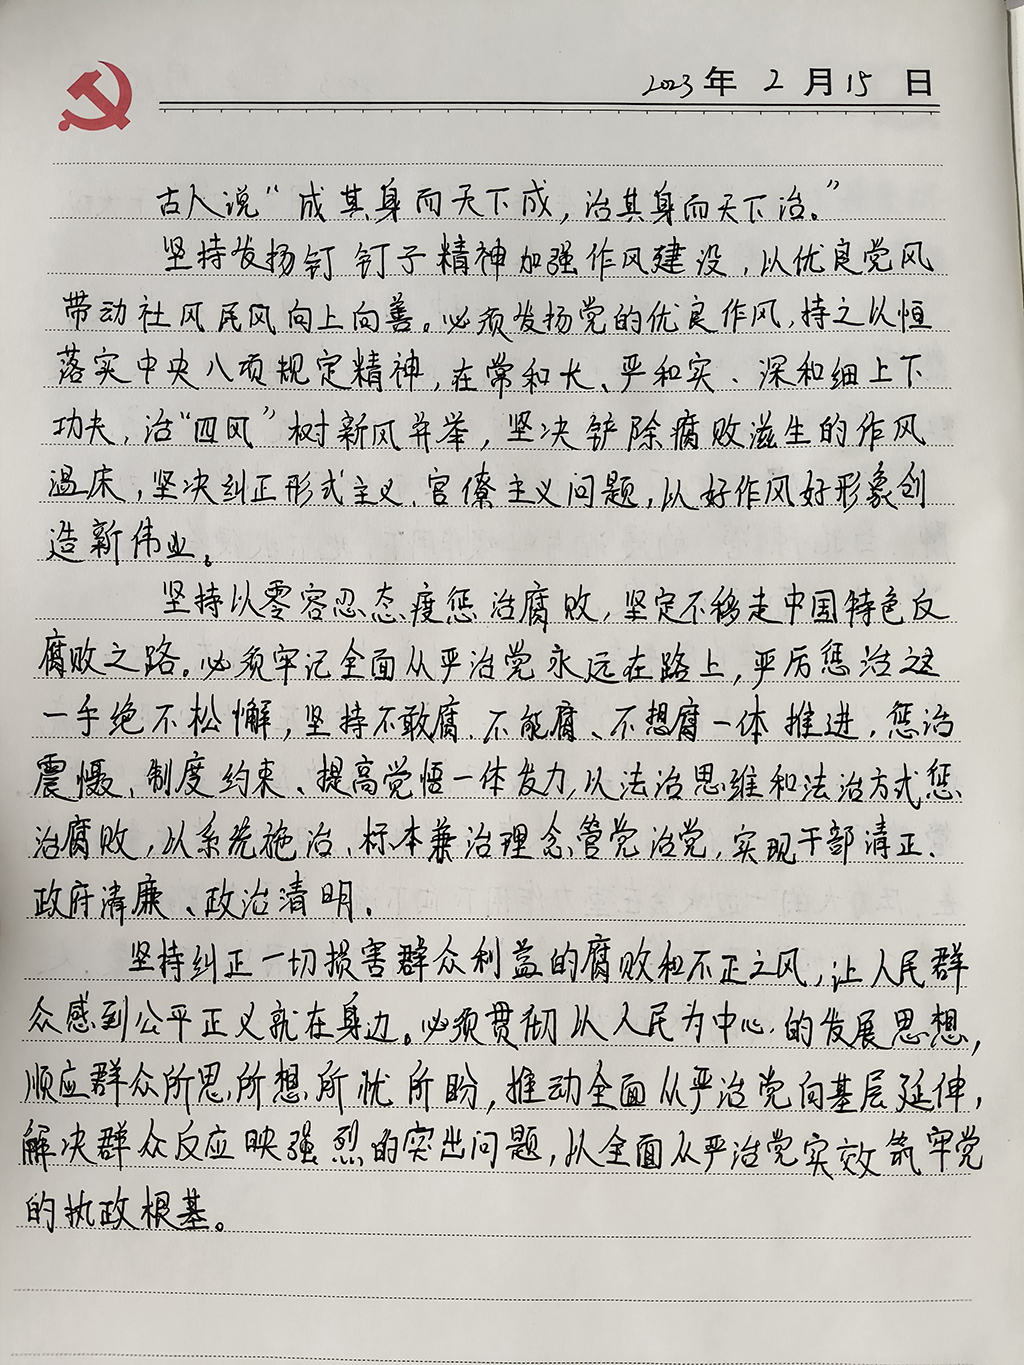 2023年2月15日
古人说“成其身而天下成，治其身而天下治。”
坚持发扬钉钉子精神加强作风建设，以优良党风
带动社风民风向上向善。必须发扬党的优良作风，持之以恒
落实中央八项规定精神，在常和长、严和实、深和细上下
功夫，治“四风”树新风并举，坚决铲除腐败滋生的作风
温床，坚决纠正形式主义、官僚主义问题，以好作风好形象创
造新伟业。
坚持以零容忍态度惩治腐败，坚定不移走中国特色反
腐败之路。必须牢记全面从严治党永远在路上，严厉惩治这
一手绝不松懈，坚持不敢腐、不能腐、不想腐一体推进，惩治
震慑、制度约束、提高觉悟一体发力，以法治思维和法治方式惩
治腐败，以系统施治、标本兼治理念管党治党，实现干部清正、
政府清廉、政治清明。
坚持纠正一切损害群众利益的腐败和不正之风，让人民群
众感到公平正义就在身边。必须贯彻以人民为中心的发展思想，
顺应群众所思、所想、所忧所盼，推动全面从严治党向基层延伸，
解决群众反应映强烈的突出问题，以全面从严治党实效筑牢党
的执政根基。